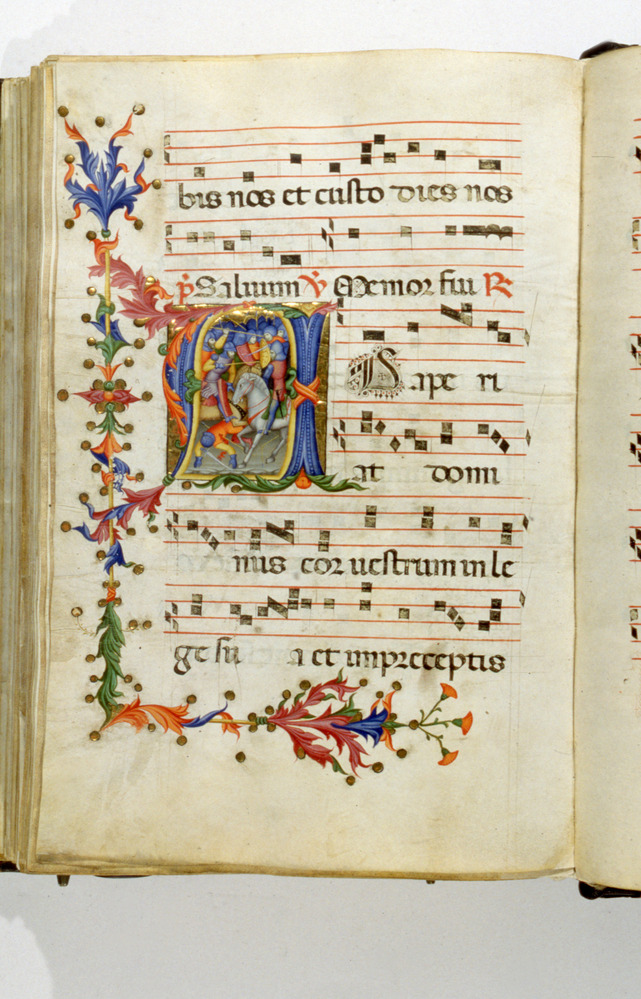 bis nos et custo dies nos
ps Saluum V Memor fui R
A Dape ri
at domi
nus cor uestrum in le
ge su a et in preceptis